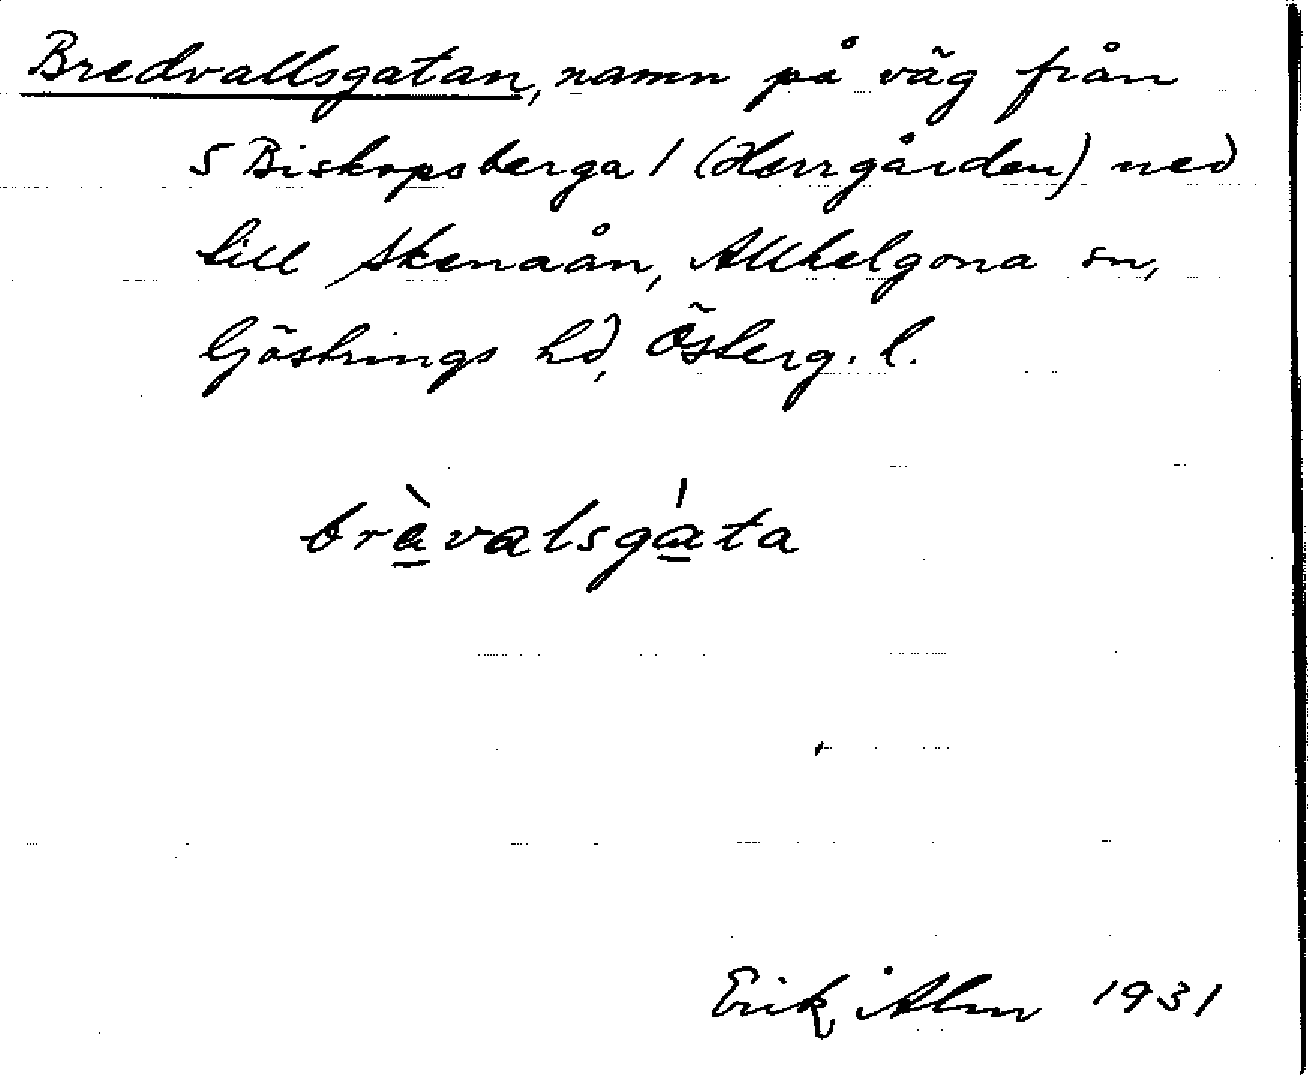 Bredvallsgatan, namn på väg från
S Biskopsberga 1 (Herrgården) ned
till Skenaån, Allhelgona sn,
Göstrings hd, Österg. l.
brèvalsgáta
Erik Åhm 1931